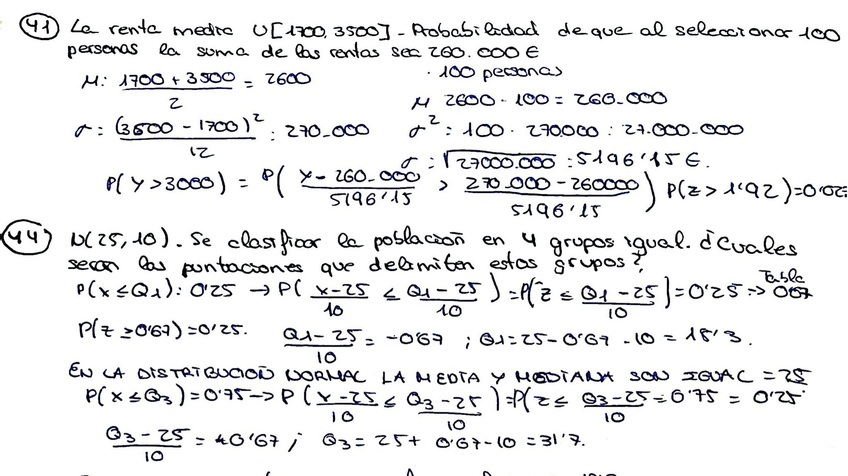 41 La renta media U[1700, 3500] - Probabilidad de que al seleccionar 100
personas la suma de las rentas sea 260.000 €
M: 1700 + 3500 / 2 = 2600 · 100 personas
M 2600 · 100 = 260.000
σ: (3500 - 1700)² / 12 : 270.000 σ² : 100 · 270.000 : 27.000.000
σ : √27000.000 : 5196'15 €.
P(Y > 3000) = P( Y - 260.000 / 5196'15 > 270.000 - 260000 / 5196'15 ) P(Z > 1'92) = 0'027
44 N(25, 10). Se clasifican la población en 4 grupos igual. ¿Cuales
seran las puntaciones que delimiten estos grupos?
P(x ≤ Q1): 0'25 → P( x-25 / 10 ≤ Q1-25 / 10 ) = P( Z ≤ Q1-25 / 10 ) = 0'25 → Tabla 0'67
P(Z ≥ 0'67) = 0'25. Q1-25 / 10 = -0'67 ; Q1 = 25 - 0'67 · 10 = 18'3.
EN LA DISTRIBUCIÓN NORMAL LA MEDIA Y MEDIANA SON IGUAL = 25
P(x ≤ Q3) = 0'75 → P( x-25 / 10 ≤ Q3-25 / 10 ) = P( Z ≤ Q3-25 / 10 = 0'75 = 0'25
Q3-25 / 10 = +0'67 ; Q3 = 25 + 0'67 · 10 = 31'7.